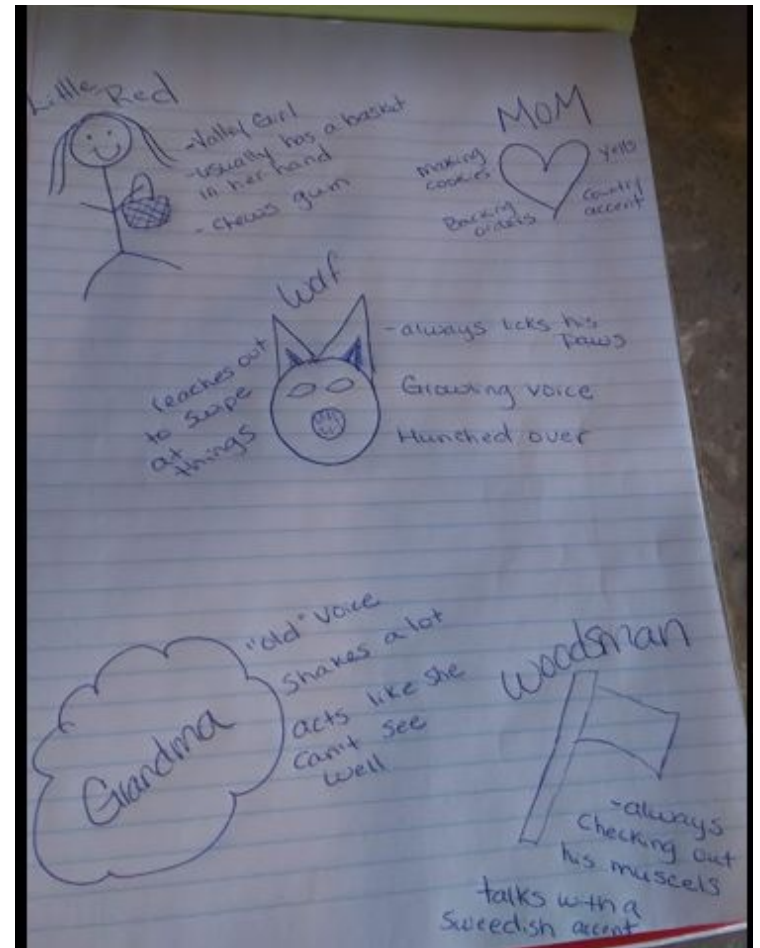 Little Red
-Valley Girl
-usually has a basket
in her hand
- chews gum
MOM
making
cookies
yells
Country
accent
Barking
orders
Wolf
reaches out
to swipe
at
things
-always licks his
Paws
Growling voice
Hunched over
Grandma
"old" voice
Shakes a lot
acts like she
can't see
well
Woodsman
-always
Checking out
his muscels
talks with a
Sweedish accent